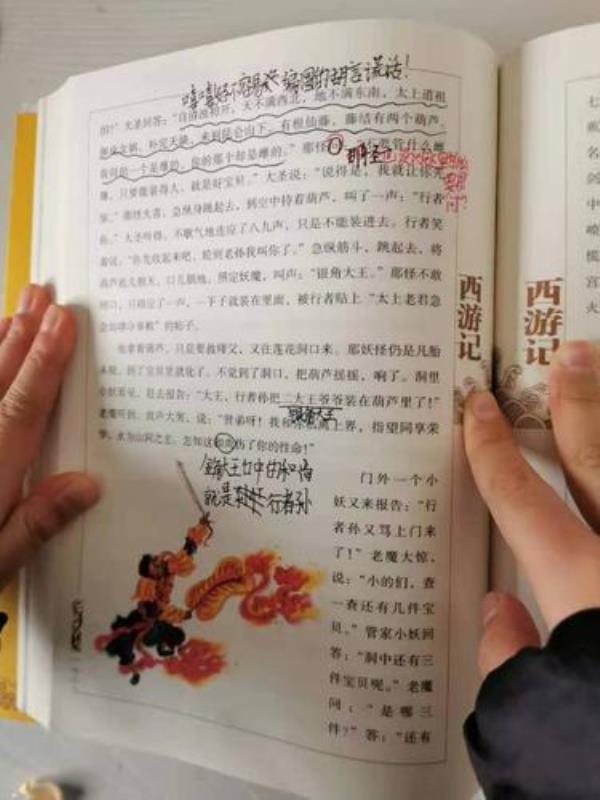 嘻嘻好不容易
编圆的胡言谎话!
的?”大圣回答:“自清浊初开,天不满西北,地不满东南,太上道祖
解化女娲,补完天缺,来到昆仑山下,有根仙藤,藤结有两个葫芦。
我的是一个是雄的,你的那个却是雌的。”那怪
要管什么雌
雄,只要能装得人,就是好宝贝。”大圣说:“说得是,我就让你先
装。”那怪大喜,急纵身跳起去,到空中持着葫芦,叫了一声:“行者
孙。”大圣听得,不歇气地连应了八九声,只是不能装进去。行者笑
着说:“你先收起来吧,轮到老孙我叫你了。”急纵筋斗,跳起去,将
葫芦底儿朝天,口儿朝地,照定妖魔,叫声:“银角大王。”那怪不敢
闭口,只得应了一声,一下子就装在里面,被行者贴上“太上老君急
急如律令奉敕”的帖子。
他拿着葫芦,只是要救师父,又往莲花洞口来。那妖怪仍是凡胎
未脱,到了宝贝里就化了。不觉到了洞口,把葫芦摇摇,响了。洞里
小妖看见,赶去报告:“大王,行者孙把二大王爷爷装在葫芦里了!”
银角大王
老魔听到,放声大哭,说:“贤弟呀!我和你私离上界,指望同享荣
华,永为山洞之主。怎知这和尚伤了你的性命!”
金角大王口中的和尚
就是行者孙
门外一个小
妖又来报告:“行
者孙又骂上门来
了!”老魔大惊,
说:“小的们,查
一查还有几件宝
贝。”管家小妖回
答:“洞中还有三
件宝贝呢。”老魔
问:“是哪三
件?”答:“还有
西游记
西游记